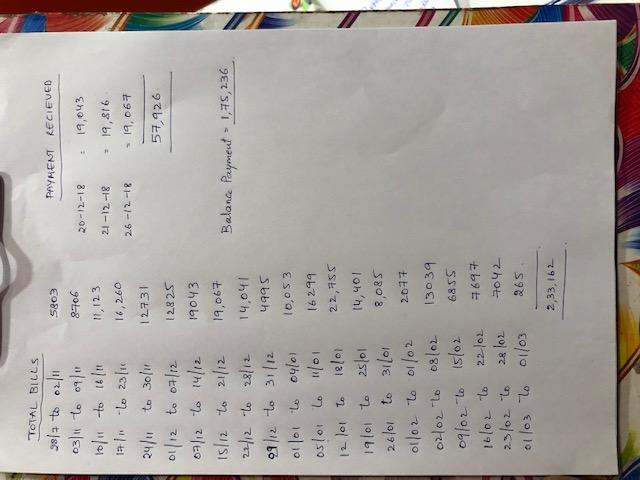 TOTAL BILLS
28/7 to 02/11 5803
03/11 to 09/11 8706
10/11 to 16/11 11,123
17/11 to 23/11 16,260
24/11 to 30/11 12731
01/12 to 07/12 12825
07/12 to 14/12 19043
15/12 to 21/12 19,067
22/12 to 28/12 14,041
09/12 to 31/12 4995
01/01 to 04/01 10,053
05/01 to 11/01 16299
12/01 to 18/01 22,755
19/01 to 25/01 14,401
26/01 to 31/01 8,085
01/02 to 01/02 2077
02/02 to 08/02 13039
09/02 to 15/02 6855
16/02 to 22/02 7697
23/02 to 28/02 7042
01/03 to 01/03 265.
2,33,162
PAYMENT RECIEVED
20-12-18 = 19,043
21-12-18 = 19,816.
26-12-18 = 19,067
57,926.
Balance Payment = 1,75,236